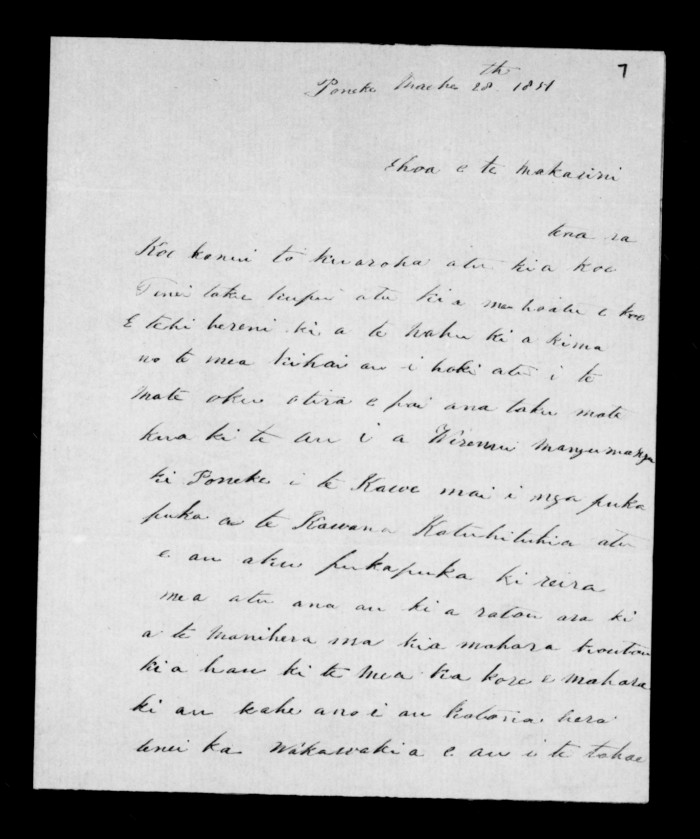 7
Poneke Maehe 28th 1851
Ehoa e te Makarini
tena ra
Koe konui to kuaroha atu kia koe
Tenei taku kupu atu kia me hoatu e koe
E tehi hereni ki a te hahu ki a kima
no te mea kihai au i hoki atu i te
mate oku otira e pai ana taku mate
kua ki te au i a Wiremu mangumangu
ki Poneke i te Kawe mai i nga puka
puka a te Kawana Katuhituhia atu
e au aku pukapuka ki reira
mea atu ana au ki a ratou ara ki
a te Manihera ma kia mahara koutou
ki a hau ki te mea kia kore e mahara
ki au kahe ano i au katoria hera
tenei ka Wakawakia e au i te tohae